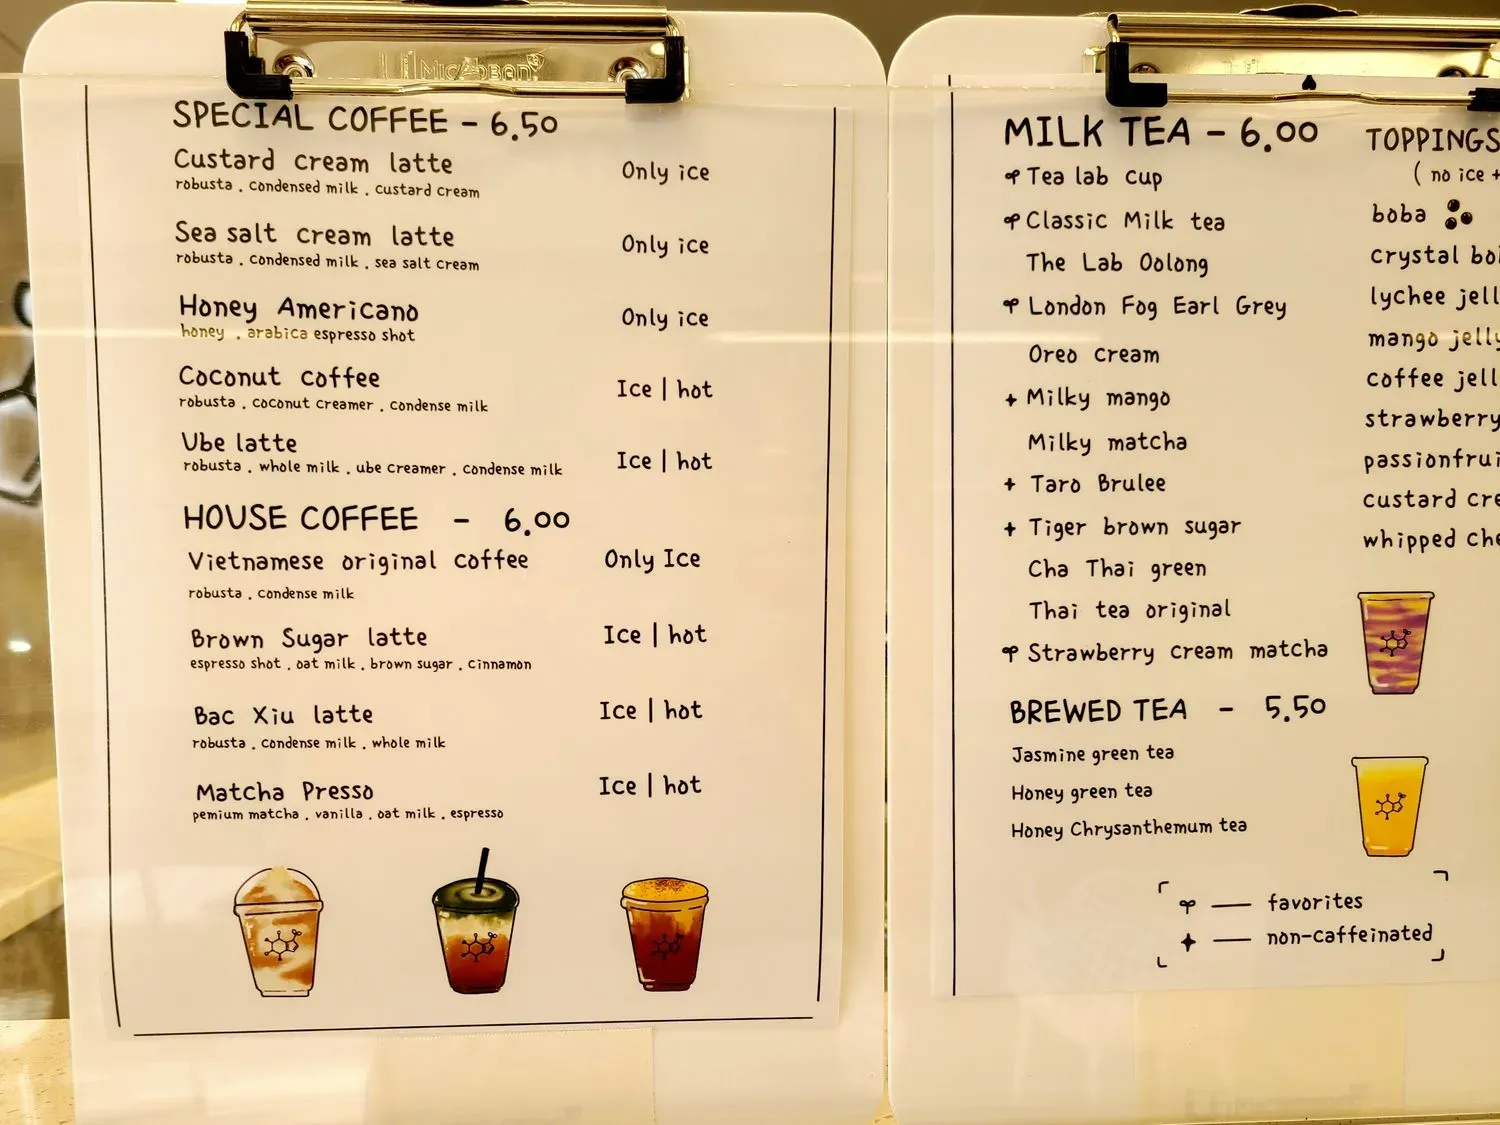 MICROBAN
SPECIAL COFFEE - 6.50
Custard cream latte Only ice
robusta . condensed milk . custard cream
Sea salt cream latte Only ice
robusta . condensed milk . sea salt cream
Honey Americano Only ice
honey . arabica espresso shot
Coconut coffee Ice | hot
robusta . coconut creamer . condense milk
Ube latte Ice | hot
robusta . whole milk . ube creamer . condense milk
HOUSE COFFEE - 6.00
Vietnamese original coffee Only Ice
robusta . condense milk
Brown Sugar latte Ice | hot
espresso shot . oat milk . brown sugar . cinnamon
Bac Xiu latte Ice | hot
robusta . condense milk . whole milk
Matcha Presso Ice | hot
pemium matcha . vanilla . oat milk . espresso
MILK TEA - 6.00
Tea lab cup
Classic Milk tea
The Lab Oolong
London Fog Earl Grey
Oreo cream
+ Milky mango
Milky matcha
+ Taro Brulee
+ Tiger brown sugar
Cha Thai green
Thai tea original
Strawberry cream matcha
BREWED TEA - 5.50
Jasmine green tea
Honey green tea
Honey Chrysanthemum tea
— favorites
+ — non-caffeinated
TOPPINGS
( no ice +
boba
crystal
lychee
mango jelly
coffee
strawberry
custard